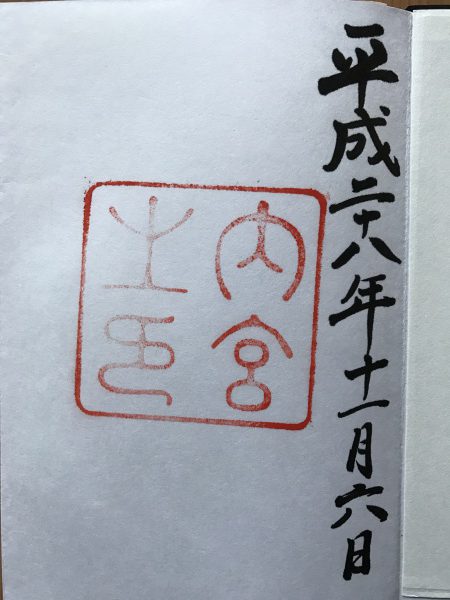 平成二十八年十一月六日
内宮
之印